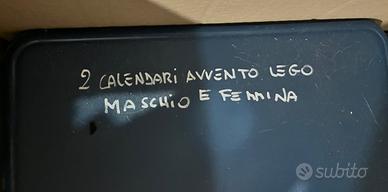 2 CALENDARI AVVENTO LEGO
MASCHIO E FEMMINA
subito